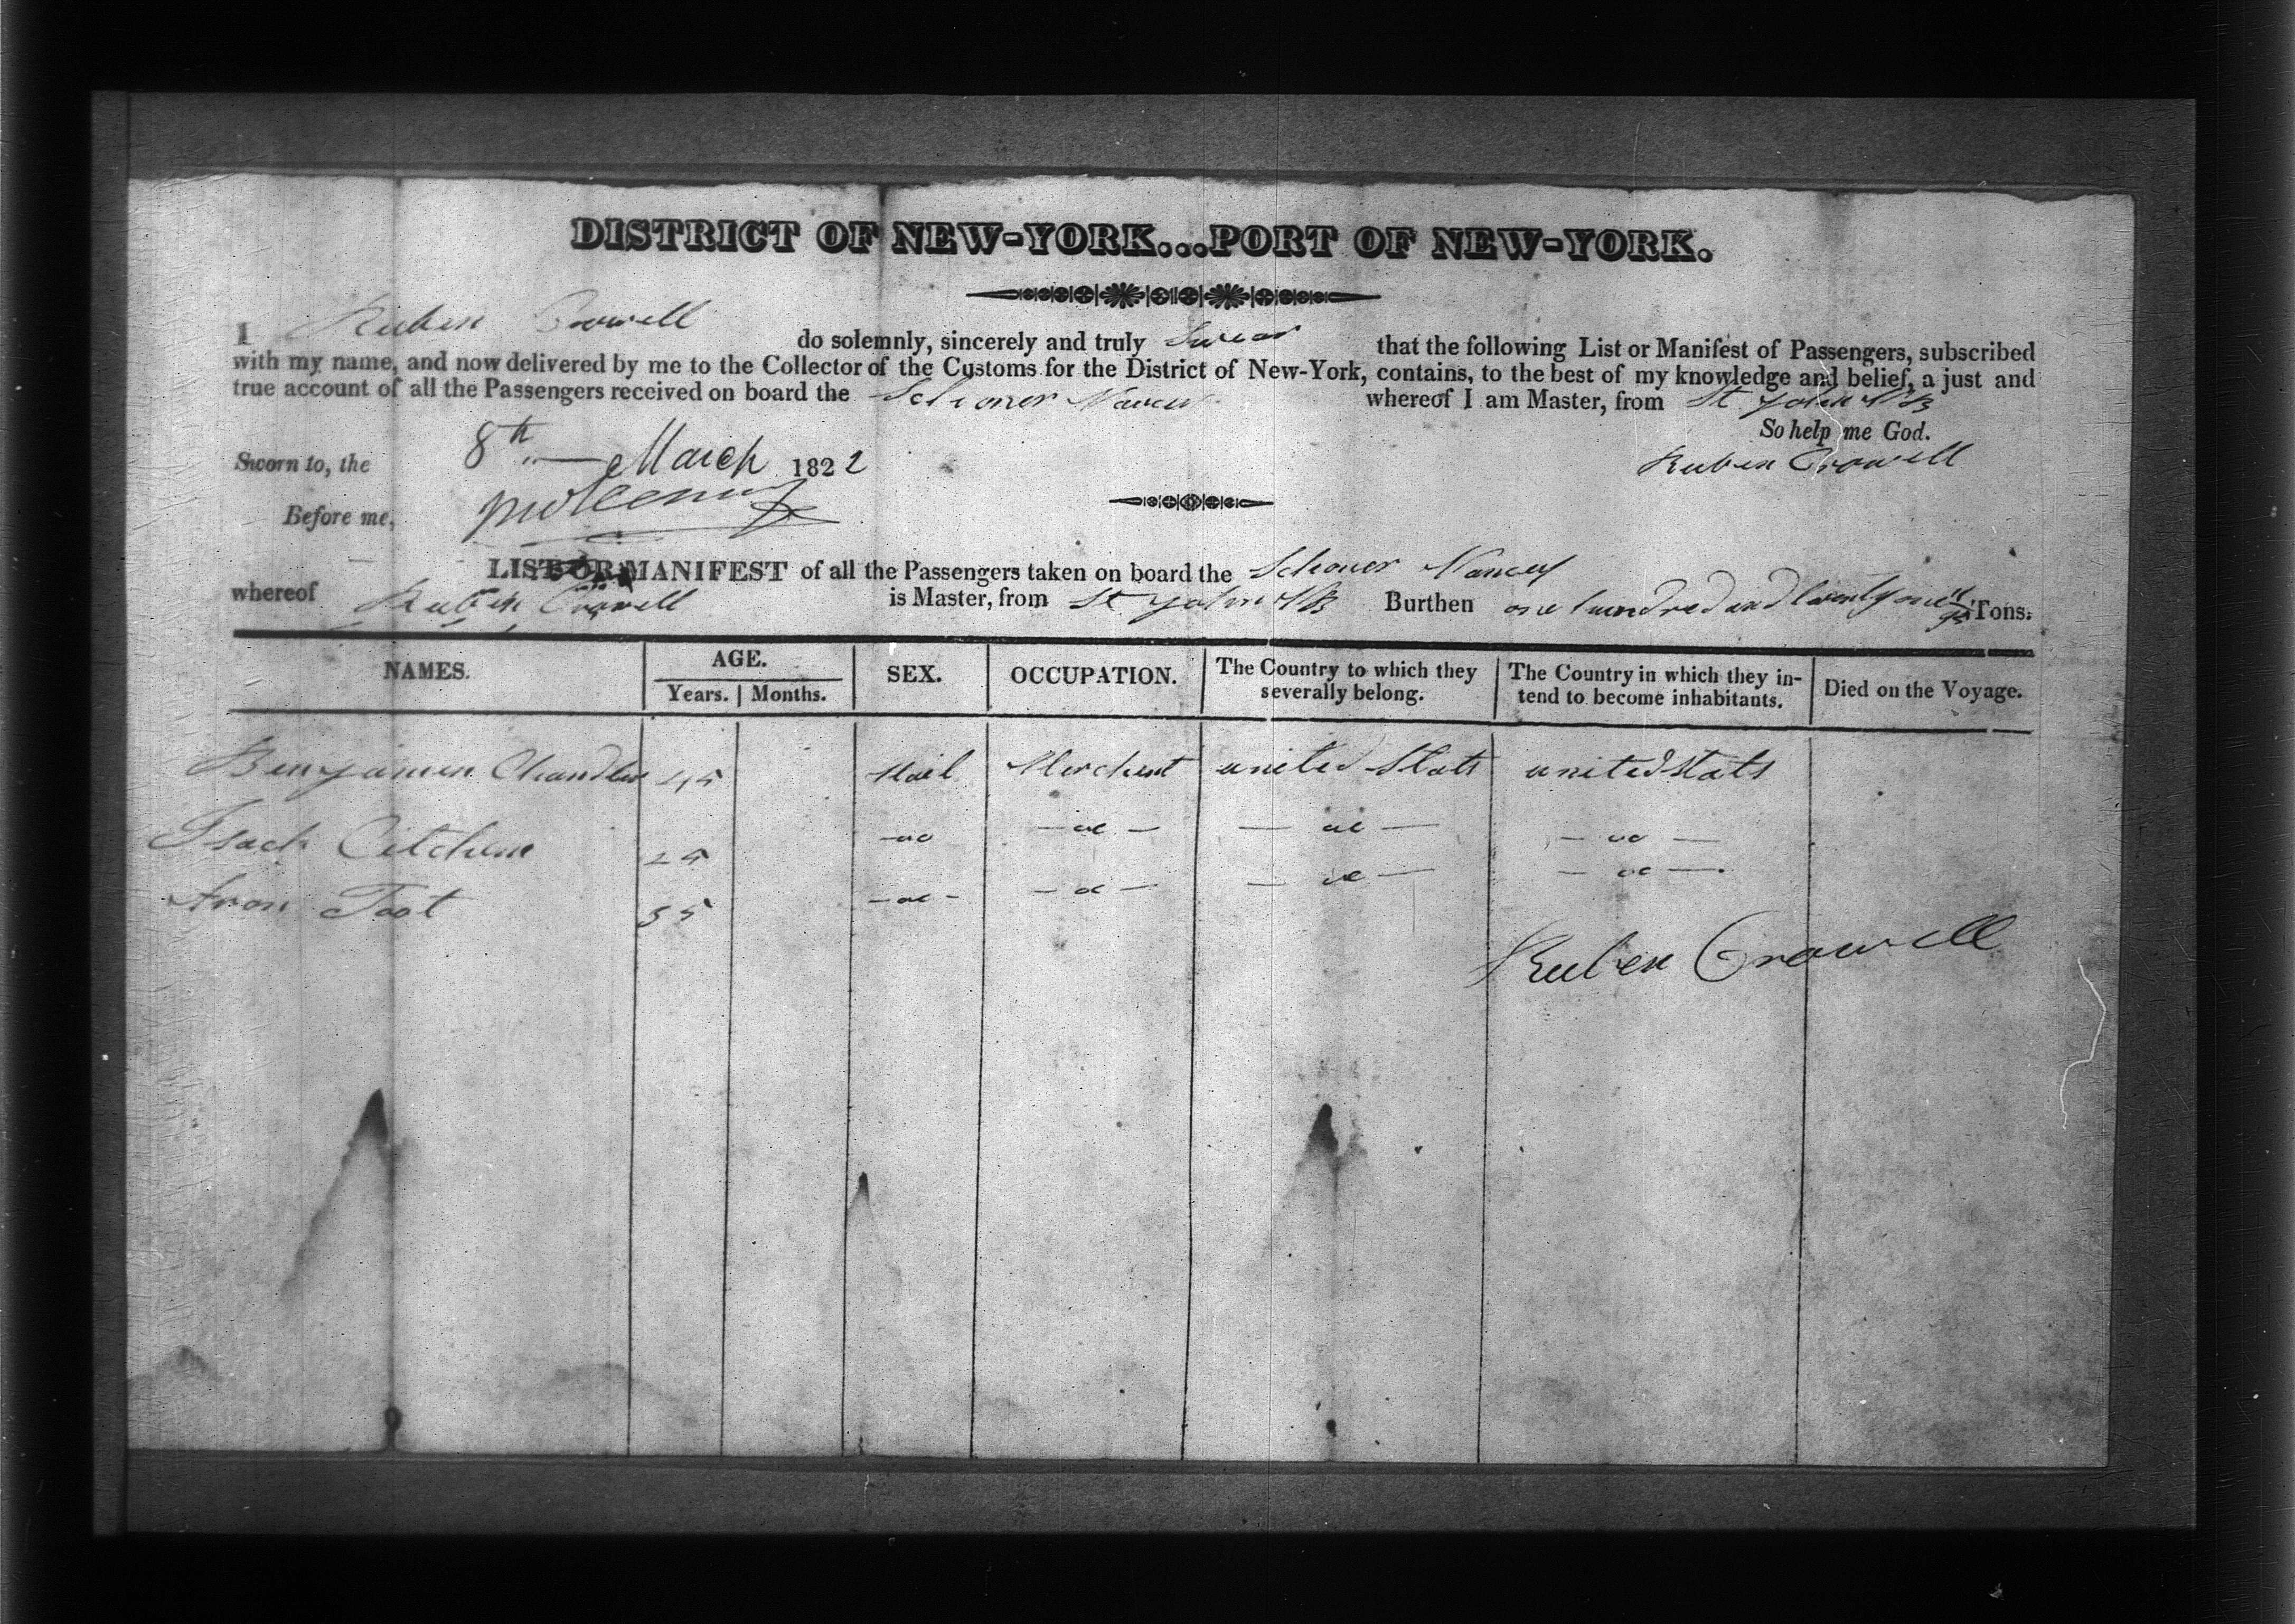 DISTRICT OF NEW-YORK...PORT OF NEW-YORK.
I Ruben Crowell do solemnly, sincerely and truly Swear that the following List or Manifest of Passengers, subscribed
with my name, and now delivered by me to the Collector of the Customs for the District of New-York, contains, to the best of my knowledge and belief, a just and
true account of all the Passengers received on board the Schoner Nancy whereof I am Master, from St John NB
So help me God.
Sworn to, the 8th March 1822 Ruben Crowell
Before me,
LIST OR MANIFEST of all the Passengers taken on board the Schoner Nancy
whereof Ruben Crowell is Master, from St John NB Burthen one hundred and twenty one Tons.
NAMES. AGE. Years. Months. SEX. OCCUPATION. The Country to which they severally belong. The Country in which they intend to become inhabitants. Died on the Voyage.
Benjamin Chandler 45 Mail Merchent united Stats united Stats
Isach 25 — do — do — — do — — do —
Aron Foot 35 — do — — do — — do — — do —
Ruben Crowell